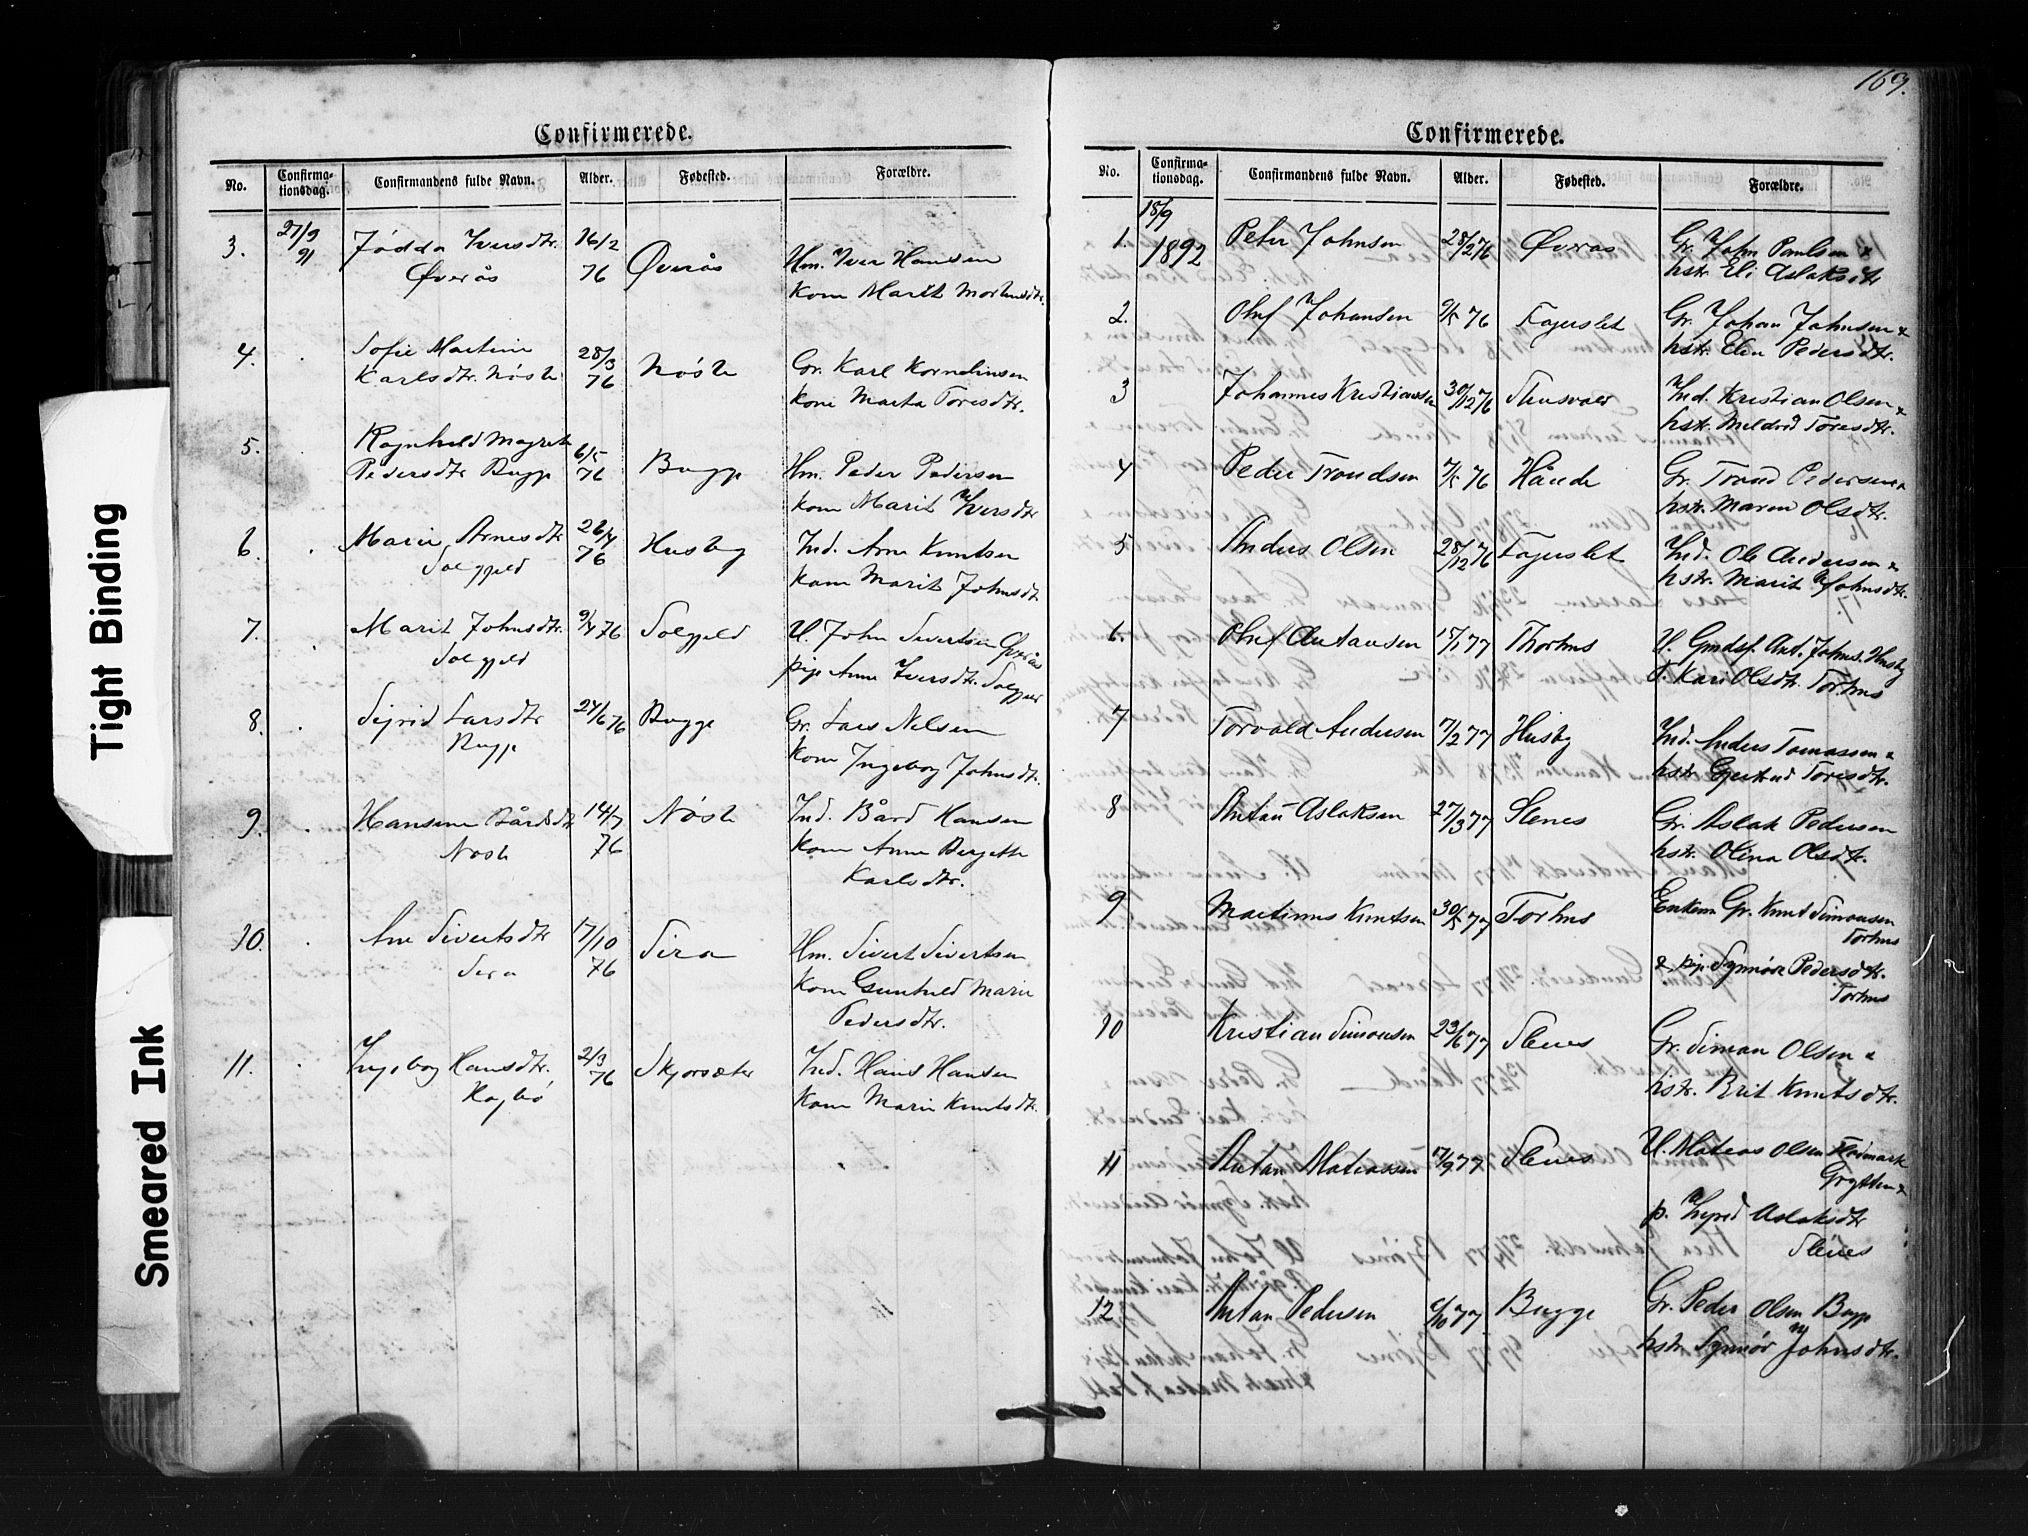 169.
Confirmerede.
No. Confirma-tionsdag. Confirmandens fulde Navn. Alder. Fødested. Forældre.
3. 27/9 91 Jødda Iversdtr. 16/2 76 Øveraas Hm. Iver Hansen
Øverås Kone Marit Mortensdtr.
4. Sofie Martine 28/3 76 Nøste Gr. Karl Kornelius­en
Karlsdtr. Nøste Kone Marta Toresdtr.
5. Ragnhild Magrete 6/5 76 Bugge Hm. Peder Pedersen
Pedersdtr Bugge Kone Marit Iversdtr
6. Marie Arnesdtr 26/4 76 Husby Ind. Arne Knutsen
Solgjeld Kone Marit Johnsdtr
7. Marit Johnsdtr. 9/4 76 Solgjeld U. John Sivertsen Øverås
Solgjeld pige Anne Iversdtr. Solgjeld
8. Sigrid Larsdtr 27/6 76 Bugge Gr. Lars Nilsen
Bugge Kone Ingeborg Johnsdtr.
9. Hansine Bårdsdtr 14/7 76 Nøste Ind. Bård Hansen
Nøste Kone Anne Bergette
Karlsdtr.
10. Ane Sivertsdtr 17/10 76 Sira Hm. Sivert Sivertsen
Sira Kone Gunhild Marie
Pedersdtr.
11. Ingeborg Hansdtr. 2/3 76 Skjorsæter Ind. Hans Hansen
Kone Marie Knutsdtr.
Confirmerede.
No. Confirma-tionsdag. Confirmandens fulde Navn. Alder. Fødested. Forældre.
18/9
1. 1892 Peter Johnsen 28/2 76 Øveraas Gr. John Paulsen &
hstr. Eli Aslaksdtr
2. Oluf Johansen 76 Fagerslet Gr. Johan Johnsen &
hstr. Elen Pedersdtr.
3 Johannes Kristiansen 30/12 76 Ind. Kristian Olsen &
hstr. Mildrid Toresdtr.
4 Peder Trondsen 7/5 76 Hånde Gr. Trond Pedersen &
hstr. Maren Olsdtr.
5 Anders Olsen 28/12 76 Fagerslet Ind. Ole Andersen &
hstr. Marit Johnsdtr.
6. Oluf Antonsen 15/1 77 Thorhus U. Gmdsf. Ant. Johns. Husby
P. Kari Olsdtr. Torhus
7 Torvald Andersen 7/2 77 Husby Ind. Anders Tomassen &
hstr. Gjertrud Toresdtr.
8 Anton Aslaksen 27/3 77 Slenes Gr. Aslak Pedersen
hstr. Olina Olsdtr.
9 Martinus Knutsen 30/5 77 Torhus Enkem. Gr. Knut Simonsen
Torhus
& pige Synnøve Pedersdtr.
Torhus
10 Kristian Simonsen 23/6 77 Slenes Gr. Simon Olsen &
hstr. Brit Knutsdtr.
11 Anton Mateassen 17/9 77 Slenes U. Mateas Olsen Flodmark
Grytten &
p. Ingrid Aslaksdtr
Slenes
12 Anton Pedersen 6/10 77 Bugge Gr. Peder Olsen Bugge
hstr. Synnøv Johnsdtr.
Tight Binding
Smeared Ink